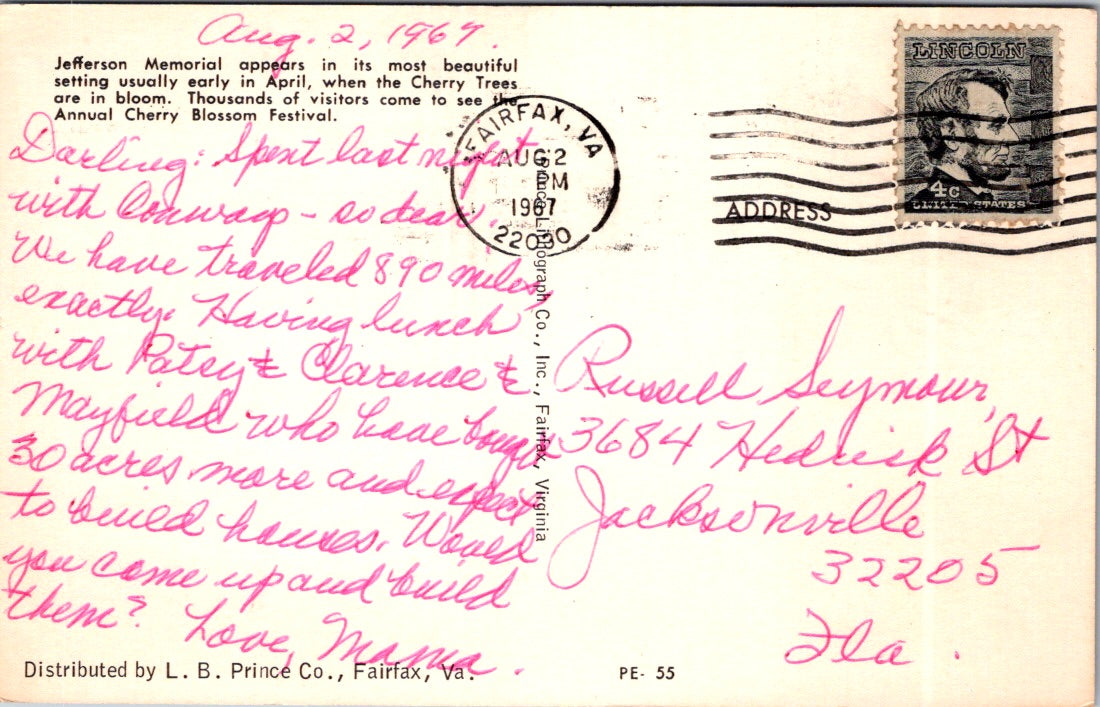 Aug. 2, 1967.
Jefferson Memorial appears in its most beautiful
setting usually early in April, when the Cherry Trees
are in bloom. Thousands of visitors come to see the
Annual Cherry Blossom Festival.
Darling: Spent last night
with Conways - so dear.
We have traveled 890 miles,
exactly. Having lunch
with Patsy & Clarence &
Mayfield who have bought
30 acres more and expect
to build houses. Would
you come up and build
them? Love, Mama.
Distributed by L. B. Prince Co., Fairfax, Va.
PE- 55
Prince Lithograph Co., Inc., Fairfax, Virginia
FAIRFAX, VA
AUG 2
PM
1967
22030
ADDRESS
LINCOLN
4c
UNITED STATES
Russell Seymour,
3684 Hedrick St
Jacksonville
32205
Fla.